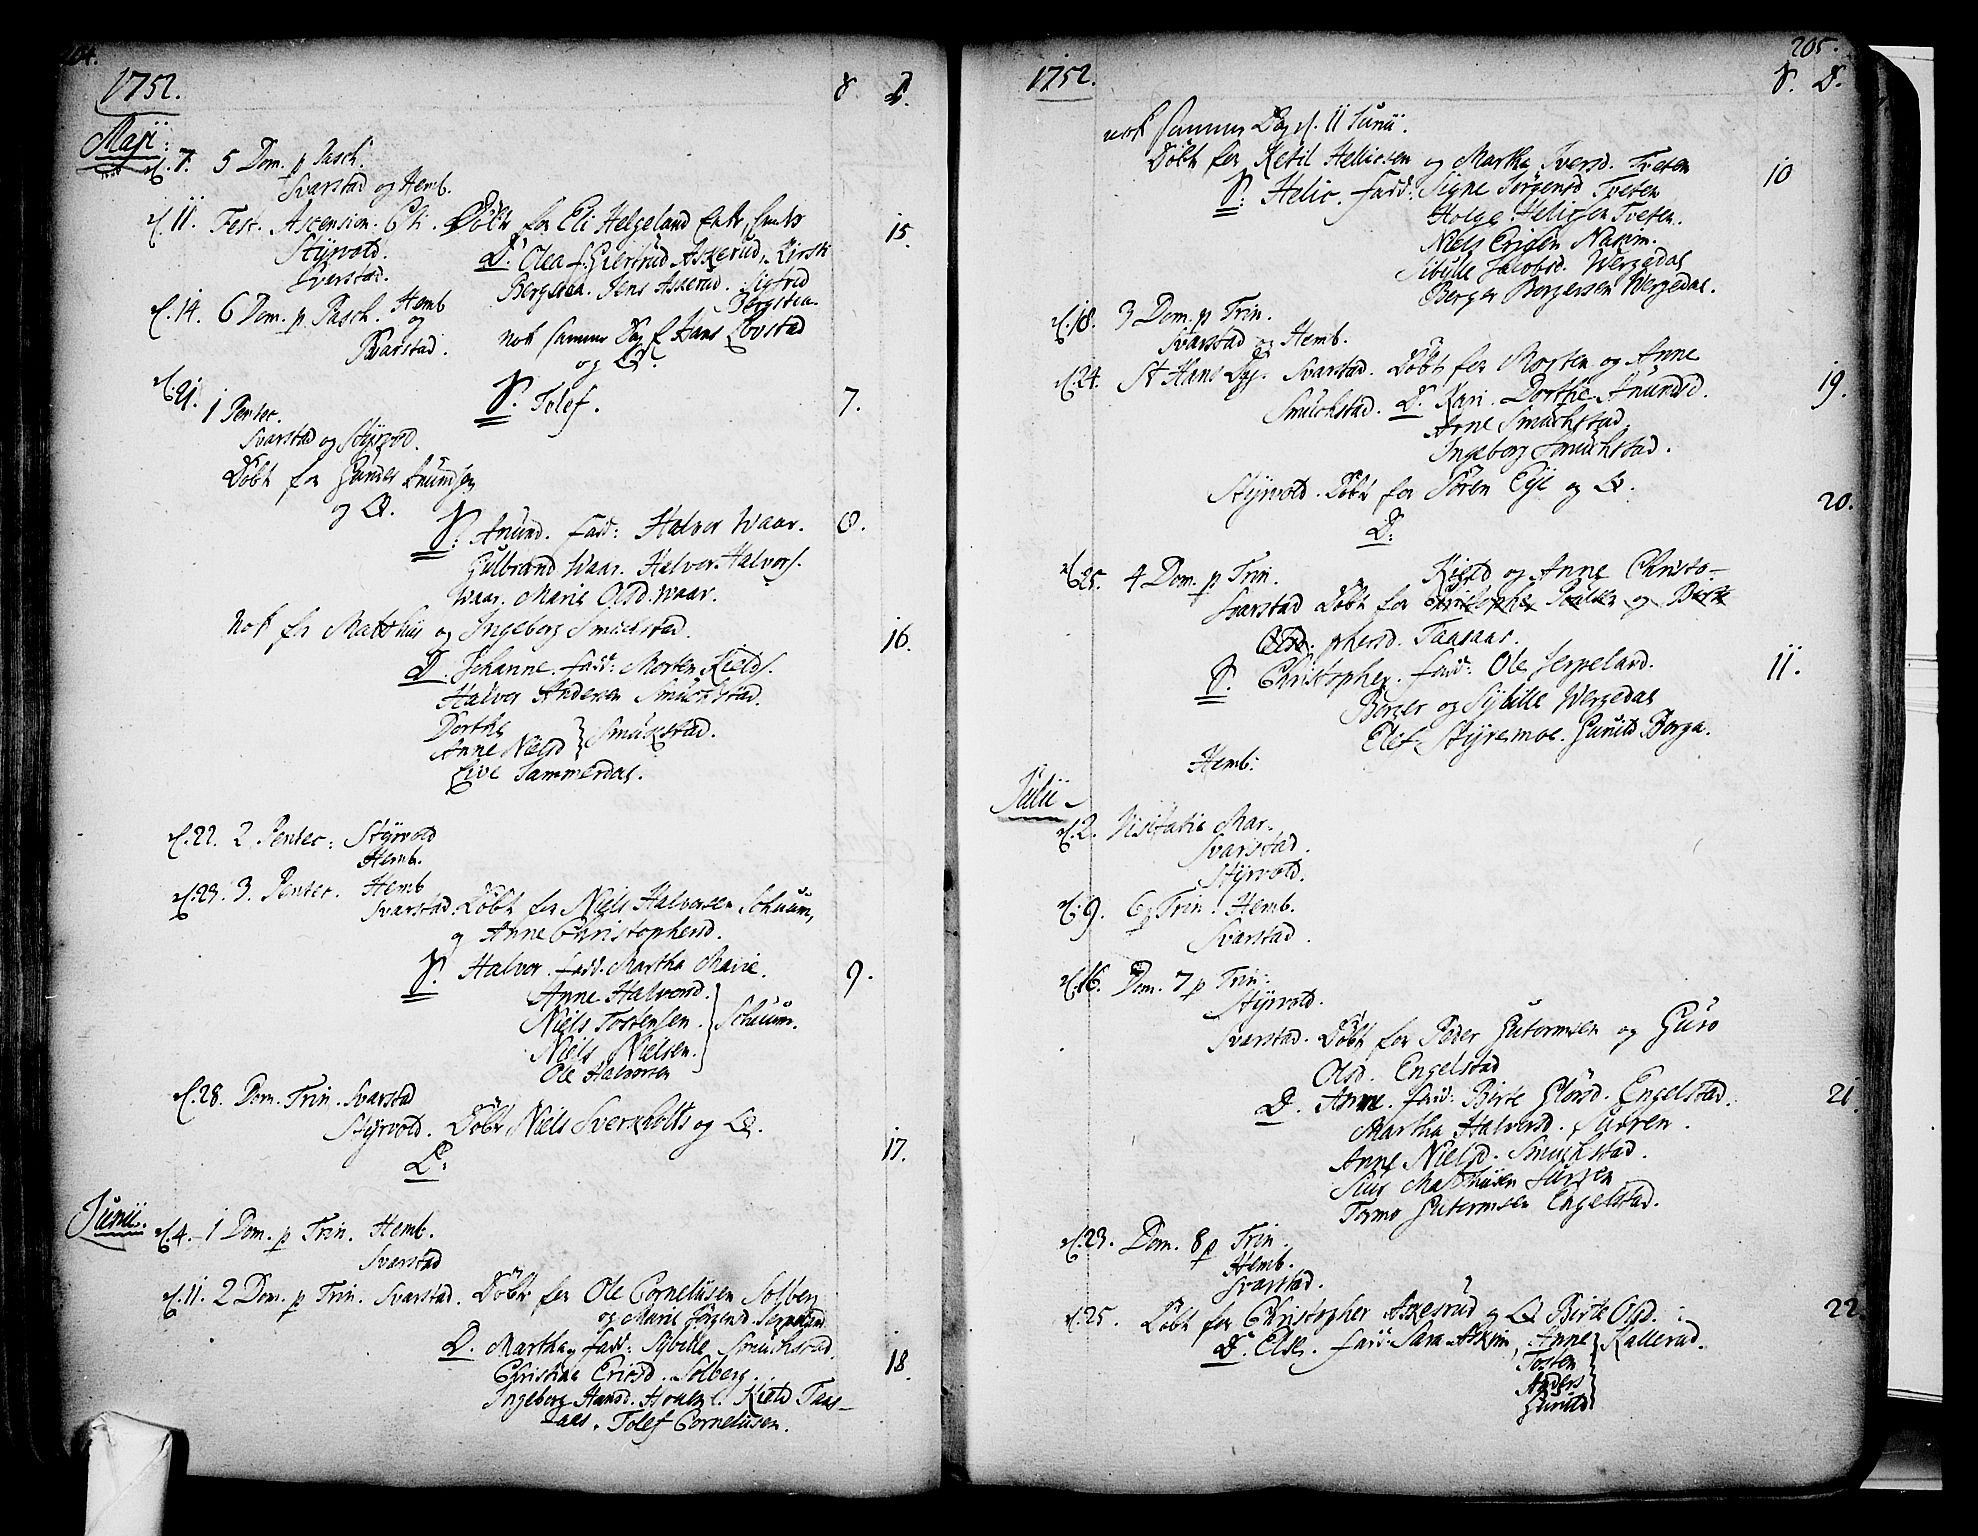 204.
1752. S. D.
Maji:
d. 7. 5 Dom. p. Pasch.
Svarstad og Hemb.
d. 11. Fest. Ascension. Chi. Döbt for Eli Helgeland Enke, Eenke 15.
Styrvold. D. Olea f. Giertrud Askerud, Kirsti
Sverstad. Bergstea. Jens Askerud. Sigfred
Bergstea.
d. 14. 6 Dom. p. Pasch. Hemb
og
Svarstad.
nok samme Dag f Hans Lövstad
og Q.
S. Tolef. 7.
d. 21. 1 Pentec.
Svarstad og Styrvold.
Döbt for Gunder Anundsen
og Q.
S: Anund. fadd: Halvor Waar. 8.
Gulbrand Waar. Halvor Halvors.
Waar. Marie Olsd. Waar.
nok for Matthis og Ingeborg Smuchstad. 16.
D. Johanne. fadd: Morten Kields.
Halvor Andersen Smuchstad.
Dorthe
Anne Nielsd } Smuchstad.
Live Sammerdal.
d. 22. 2 Pentec: Styrvold
Hemb.
d. 23. 3. Pentec. Hemb
Svarstad. Döbt for Niels Halvorsen Schuum,
og Anne Christophersd.
S. Halvor. fadd. Martha Marie. 9.
Anne Halvorsd.
Niels Tostensen. } Schuum.
Niels Nielsen.
Ole Halvorsen
d. 28. Dom. Trin. Svarstad
Styrvold. Döbt Niels Sverkholts og Q.
D: 17.
Junii.
d. 4. 1 Dom. p Trin. Hemb.
Svarstad
d. 11. 2 Dom. p Trin. Svarstad. Döbt for Ole Cornelüsen Solberg
og Marie Jörgensd. Seppeland
D. Martha, fadd: Sybille Smuchstad. 18.
Christine Ericsd. Solberg.
Ingeborg Hansd. Kield Taas-
aas. Tolef Cornelüsen.
205.
1752. S. D.
nok samme Dag d. 11 Junii.
Döbt for Ketil Helliesen og Martha Iversd. Tveten 10
S: Helie. fadd: Signe Jörgensd Tveten
Holge Heliesen Tveten.
Niels Ericsen
Sibylle Jacobsd. Wergedal
Berger Borgersen Wergedal.
d. 18. 3 Dom. p Trin.
Svarstad og Hemb.
d. 24. St Hans Dag. Svarstad. Döbt for Morten og Anne
Smuchstad. D. Kari. Dorthe Anundsd. 19.
Arne Smuchstad
Ingeborg Smuchstad.
Styrvold. Döbt for Sören Eye og Q. 20.
D:
d. 25. 4 Dom. p Trin. Kield og Anne Christo-
Svarstad Döbt for
phersd. Taasaas.
S. Christopher. fadd: Ole Seppeland. 11.
Borger og Sybille Wergedal
Elef Styremoe. Gunild Borga.
Hemb:
Julii
d. 2. Visitatio Mar.
Svarstad.
Styrvold.
d. 9. 6 p Trin. Hemb.
Svarstad.
d. 16. Dom. 7 p Trin:
Styrvold.
Svarstad. Döbt for Peder Gutormsen og Guro
Olsd. Engelstad
D. Anne. fadd: Birte Olsd. Engelstad. 21.
Martha Halvorsd. Jurren.
Anne Nielsd. Smuchstad.
Siur Matthisen Jurren
Tormo Gutormsen Engelstad.
d. 23. Dom. 8 p Trin.
Hemb.
Svarstad.
d. 25. Döbt for Christopher Askerud og Q Birte Olsd. 22.
D. Else. fadd: Sara Askim, Anne } Kallerud.
Tosten
Anders
Gunild